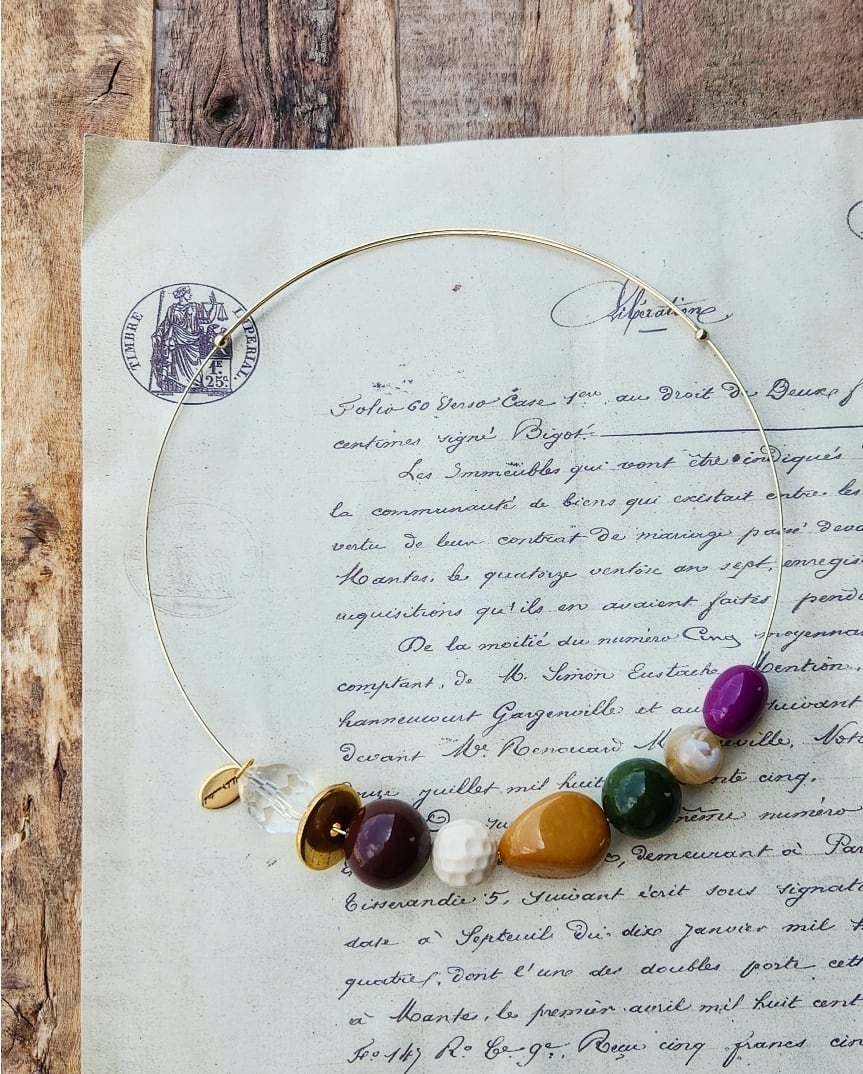 TIMBRE IMPERIAL.
1F.
25c.
Libération
Folio 60 Verso Case 1ere au droit de Deux f
centimes signé Bigot.
Les Immeübles qui vont être indiqués
la communauté de biens qui existait entre les
vertu de leur contrat de mariage passé deva
Mantes, le quatorze ventôse an sept, enregis
acquisitions qu'ils en avaient faites pendu
De la moitié du numéro Cinq moyenna
comptant, de M. Simon Eustache Mention,
hanneucourt Gargenville et au suivant
devant Me. Renouard M ville, Not
ouze juillet mil huit te cinq.
même numéro
demeurant à Par
Tisserandie 5, suivant écrit sous signat
date à Septeuil Du dix Janvier mil
quatre, dont l'une des doubles porte cett
à Mante, le premier avril mil huit cent
Fo 147 Ro Ce 9e, Reçu cinq francs cin